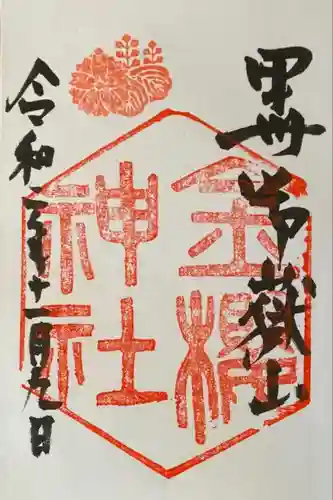 甲州御嶽山
金櫻
神社
令和二年十一月九日